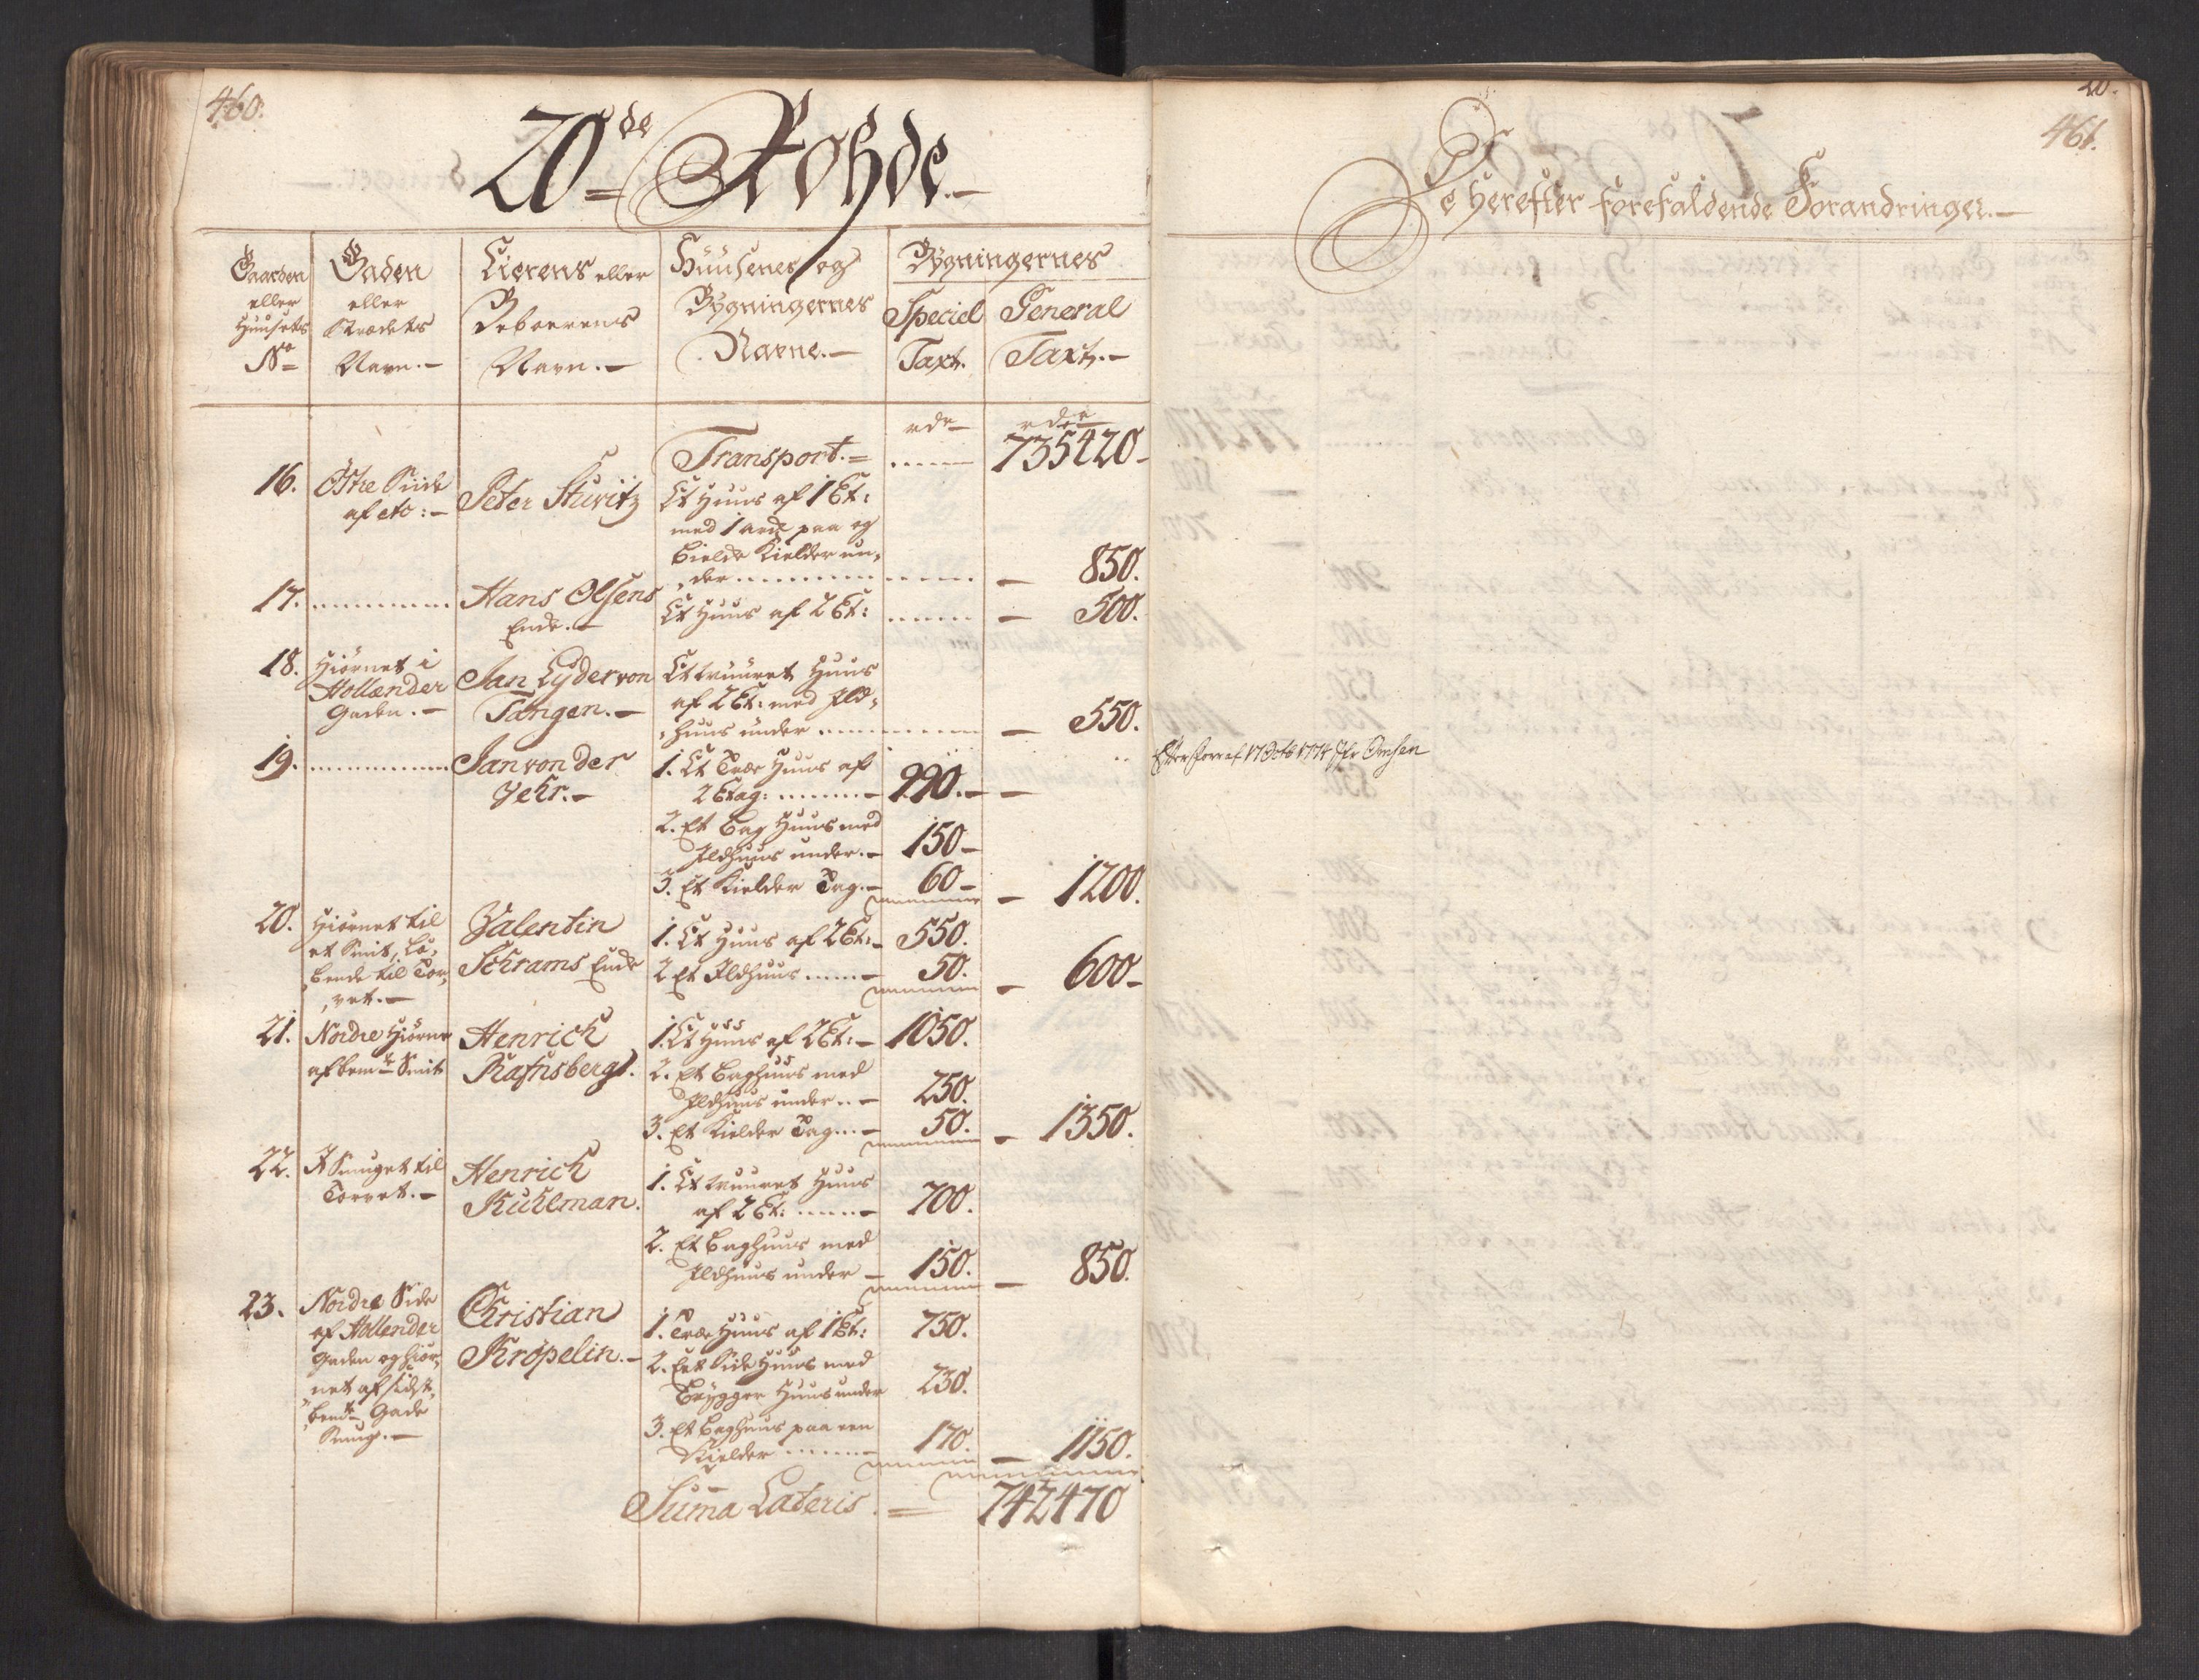 460.
20de Rohde.
Gaarden
eller
Huusets
No
Gaden
eller
Strædets
Navn.
Eierens eller
Beboerens
Navn.
Huusenes og
Bygningernes
Navne.
Bygningernes
Speciel
Taxt.
General
Taxt.
rdr
rdr
Transport. 735420
16. Østre Siide
af dto: Peter Sturitz
Et Huus af 1 Et:
med 1 ark paa og
Bielke Kielder un,
,der 850.
17. Hans Olsens
Enke. Et Huus af 2 Et: 500.
18. Hiørnet i
Hollænder
Gaden. Jan Lyder von
Tangen. Et muuret Huus
af 2 Et: med Ild,
,huus under 550.
19. Jan von der
Vehr. 1. Et Træe Huus af
2 Etag: 990.
2. Et Bag Huus med
Ildhuus under. 150
3. Et Kielder Tag. 60 1200.
20. Hiørnet til
et Smit, Lø,
,bende til Tor,
,vet. Valentin
Schrams Enke 1. Et Huus af 2 Et: 550.
2 Et Ildhuus 50. 600
21. Nordre Hiørne
af bemte Smit Henrich
Rafnsberg. 1. Et Huus af 2 Et: 1050.
2. Et Baghuus med
Ildhuus under 250.
3. Et Kielder Tag 50. 1350.
22. I Smuget til
Torvet. Henrich
Kuhlman. 1. Et muuret Huus
af 2 Et: 700.
2. Et Baghuus med
Ildhuus under 150. 850.
23. Nordre Side
af Hollender
Gaden og Hiør,
,net af sidst,
,bemte Gade
Smug. Christian
Kröpelin. 1. Træe Huus af 1 Et: 750.
2. Et Side Huus med
Brygger Huus under 230.
3. Et Baghuus paa een
Kielder 170. 1150.
Suma Lateris. 742470
20.
461.
De herefter forefaldende Forandringer.
Efter af 17 Octb 1774